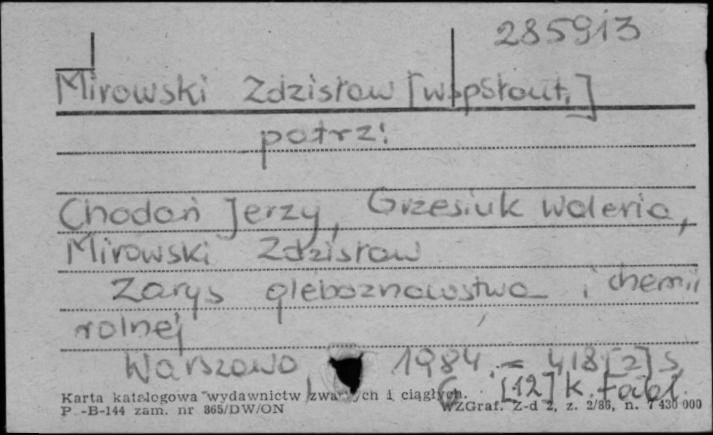 285913
Mirowski Zdzisław [współaut.]
patrz:
Chodań Jerzy, Grzesiuk Waleria,
Mirowski Zdzisław
Zarys gleboznawstwa i chemii
rolnej
Warszawa 1984. - 418 [2] s,
[12] k. tabl.
Karta katalogowa wydawnictw zwartych i ciągłych.
P -B-144 zam. nr 865/DW/ON WZGraf. Z-d 2, z. 2/86, n. 7 430 000